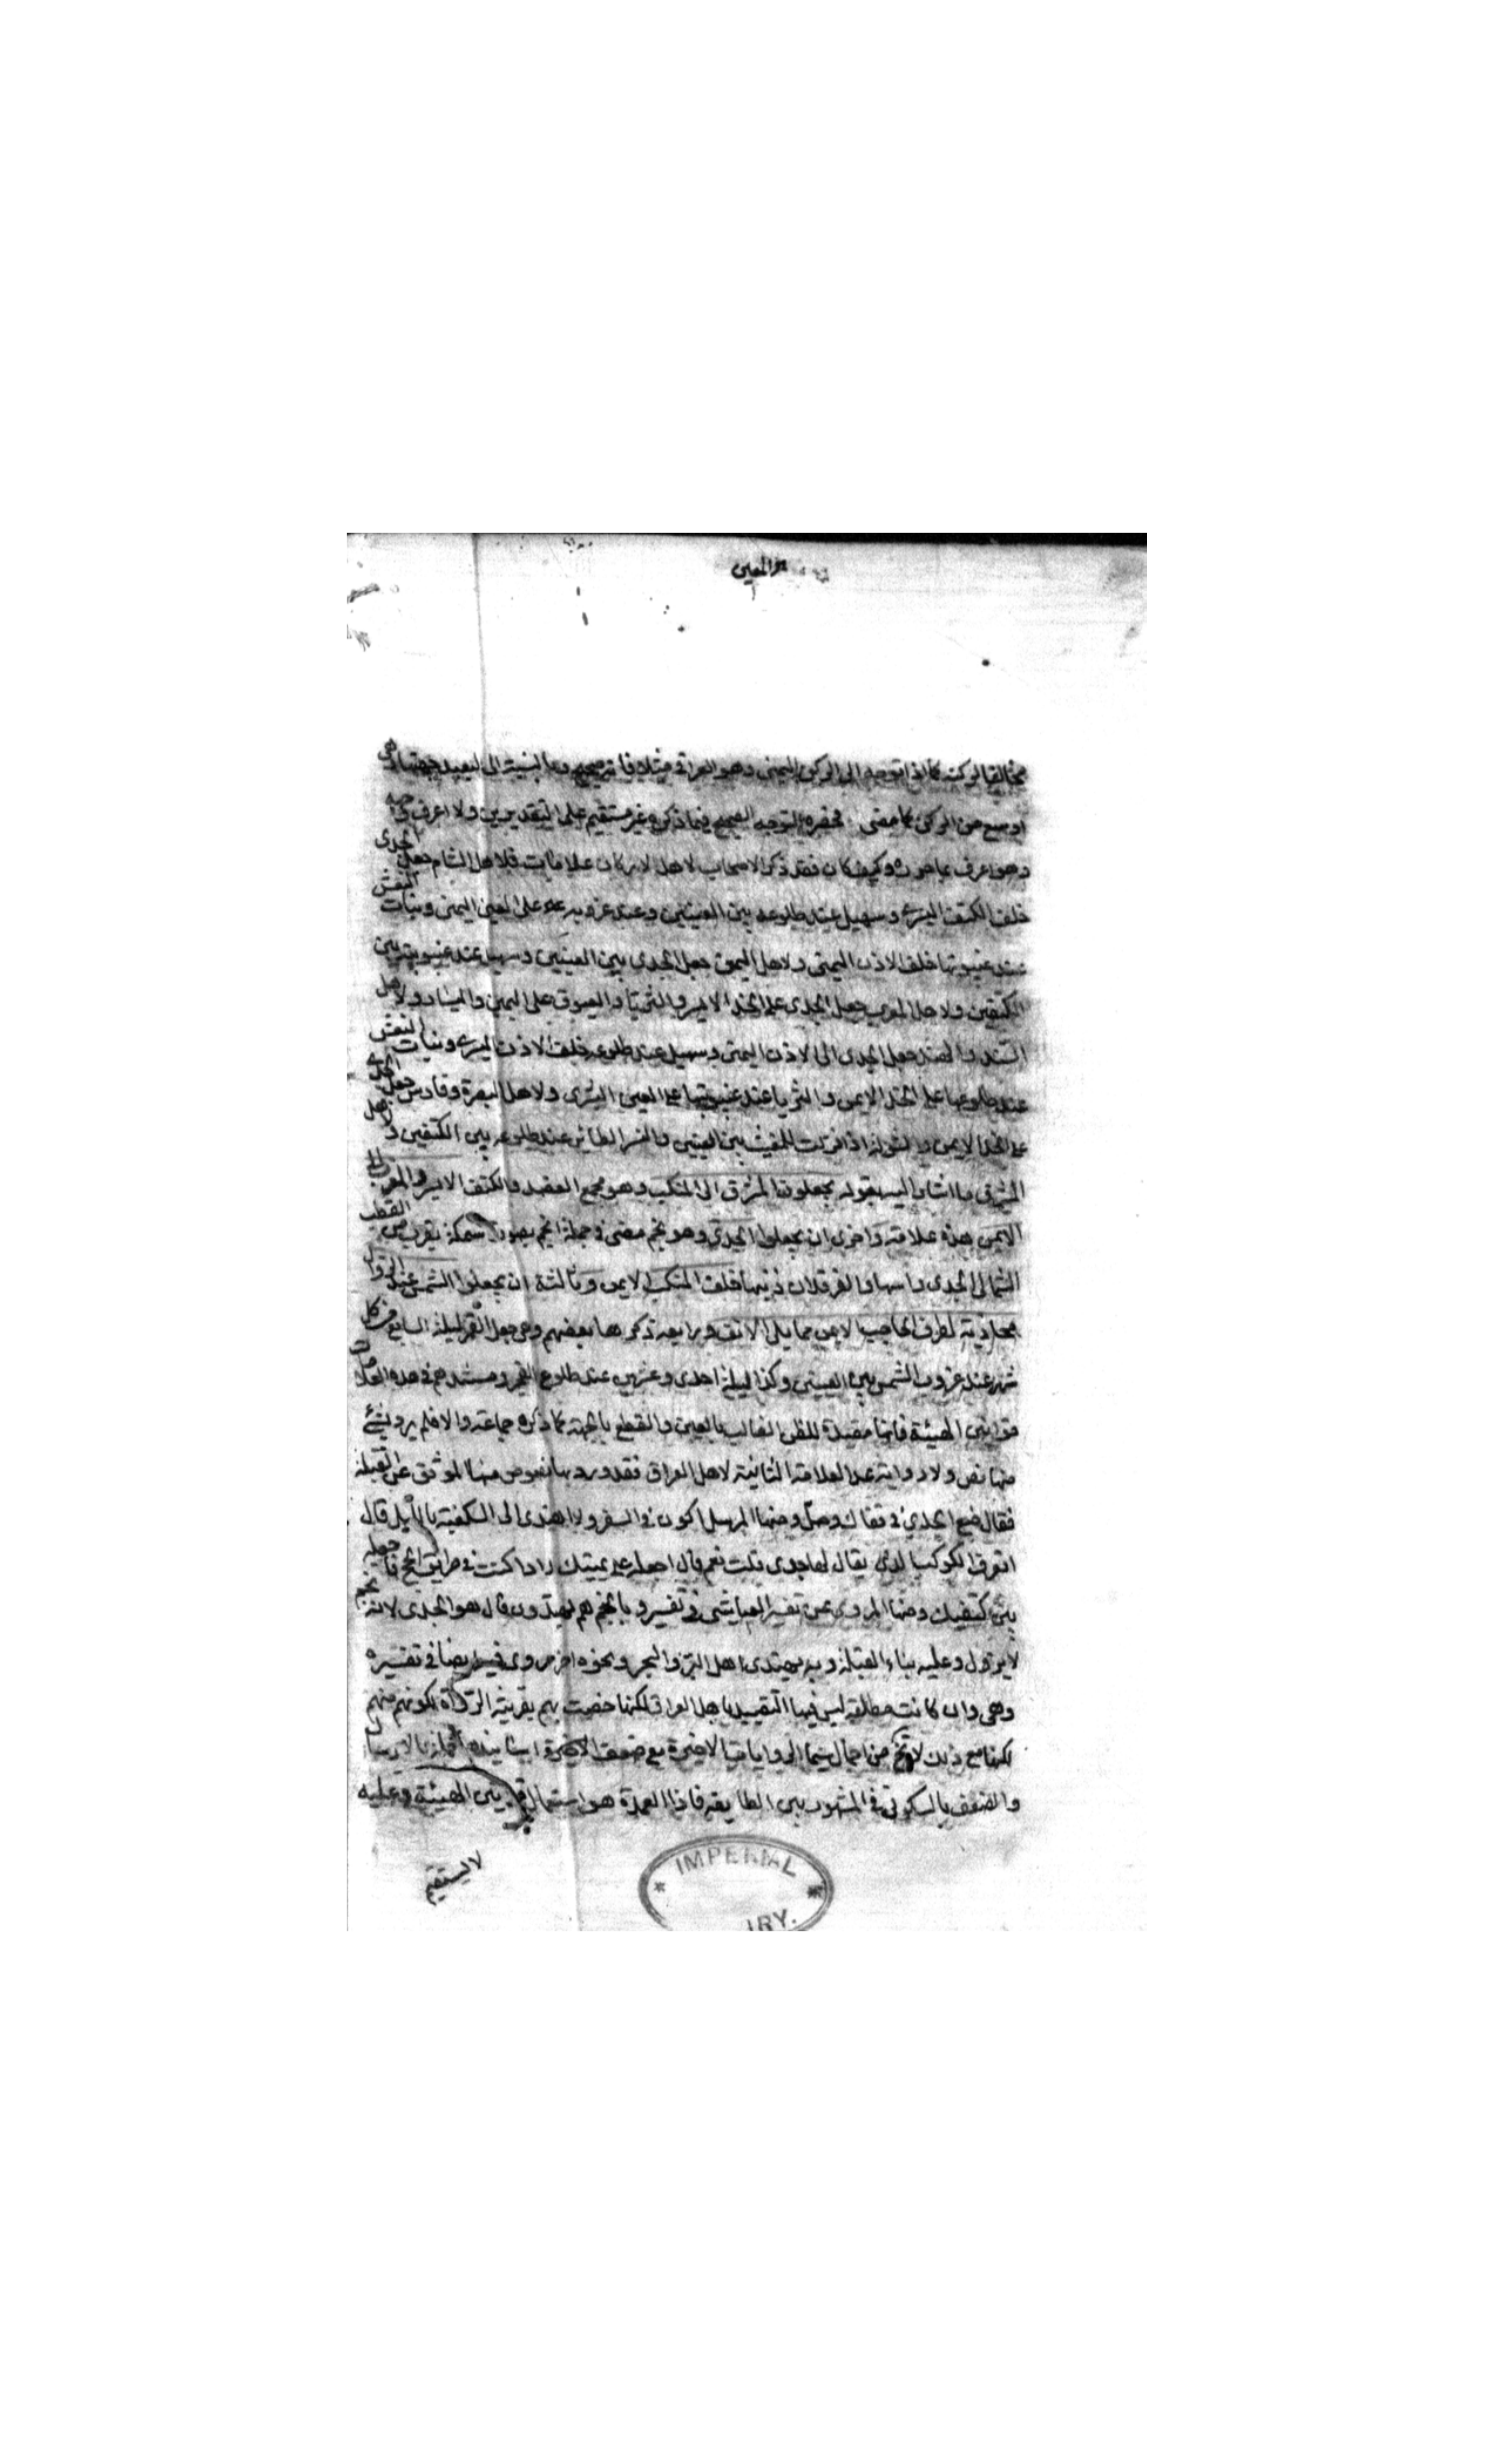 مخالفا لركنه كما اذا توجه الى الركن اليمنى وهو العراقى مثلا فانه صحيح وبالنسبة الى البعيد جهتها وهى
اوسع من الركن كما مضى فحصره التوجه الصحيح فيما ذكره غير مستقيم على التقديرين ولا اعرف له وجه
وهو اعرف بما حرره وكيف كان فقد ذكر الاصحاب لاهل الاركان علامات فلاهل الشام جعل الجدى
خلف الكتف اليسرى وسهيل عند طلوعه بين العينين وعند غروبه على العين اليمنى وبنات النعش
عند غيبوبتها خلف الاذن اليمنى ولاهل اليمن جعل الجدى بين العينين وسهيل عند غيبوبته بين
الكتفين ولاهل المغرب جعل الجدى على الخد الايسر والثريا والعيوق على اليمين واليسار ولاهل
السند والهند جعل الجدى الى الاذن اليمنى وسهيل عند طلوعه خلف الاذن اليسرى وبنات النعش
عند طلوعها على الخد الايمن والثريا عند غيبوبتها على العين اليسرى ولاهل البصرة وفارس جعل الجدى
على الخد الايمن والشولة اذا نزلت للمغيب بين العينين والنسر الطاير عند طلوعه بين الكتفين ولاهل
المشرق ما اشار اليه بقوله يجعلون المشرق الى المنكب وهو مجمع العضد والكتف الايسر والمغرب الى
الايمن هذه علامة واخرى ان يجعلوا الجدى وهو نجم مضى فى جملة انجم بصورة سمكة بقرب من القطب
الشمالى الجدى راسها والفرقدان ذنبها خلف المنكب الايمن وثالثة ان يجعلوا الشمس عند الزوال
محاذية لطرف الحاجب الايمن مما يلى الانف ورابعة ذكرها بعضهم وهى جعل القمر ليلة السابع من كل
شهر عند غروب الشمس بين العينين وكذا ليلة احدى وعشرين عند طلوع الفجر ومستندهم فى هذه العلامات
قوانين الهيئة فانها مفيدة للظن الغالب بالعين والقطع بالجهة كما ذكره جماعة والا فلم يرد بشئ
منها نص ولا رواية عدا العلامة الثانية لاهل العراق فقد ورد بها نصوص منها الموثق عن القبلة
فقال ضع الجدى فى قفاك وصل ومنها المرسل اكون فى السفر ولا اهتدى الى القبلة بالليل قال
اتعرف الكوكب الذى يقال لها جدى قلت نعم قال اجعله على يمينك واذا كنت فى طريق الحج فاجعله
بين كتفيك ومنها المروى عن تفسير العياشى فى تفسير وبالنجم هم يهتدون قال هو الجدى لانه نجم
لا يزول وعليه بناء القبلة وبه يهتدى اهل البر والبحر ونحوه اخر مروى فيه ايضا فى تفسيره
وهى وان كانت مطلقة ليس فيها التقييد باهل العراق لكنها خصت بهم بقرينة الرواة لكونهم منهم
لكنها مع ذلك لا تخ من اجمال سيما الروايات الاخيرة مع ضعف الاخيرة اسانيدها كملا بالارسال
والضعف بالسكونى فى المشهور بين الطايفة فاذا العمدة هو استعمال قوانين الهيئة وعليه
لا يستقيم
IMPERIAL